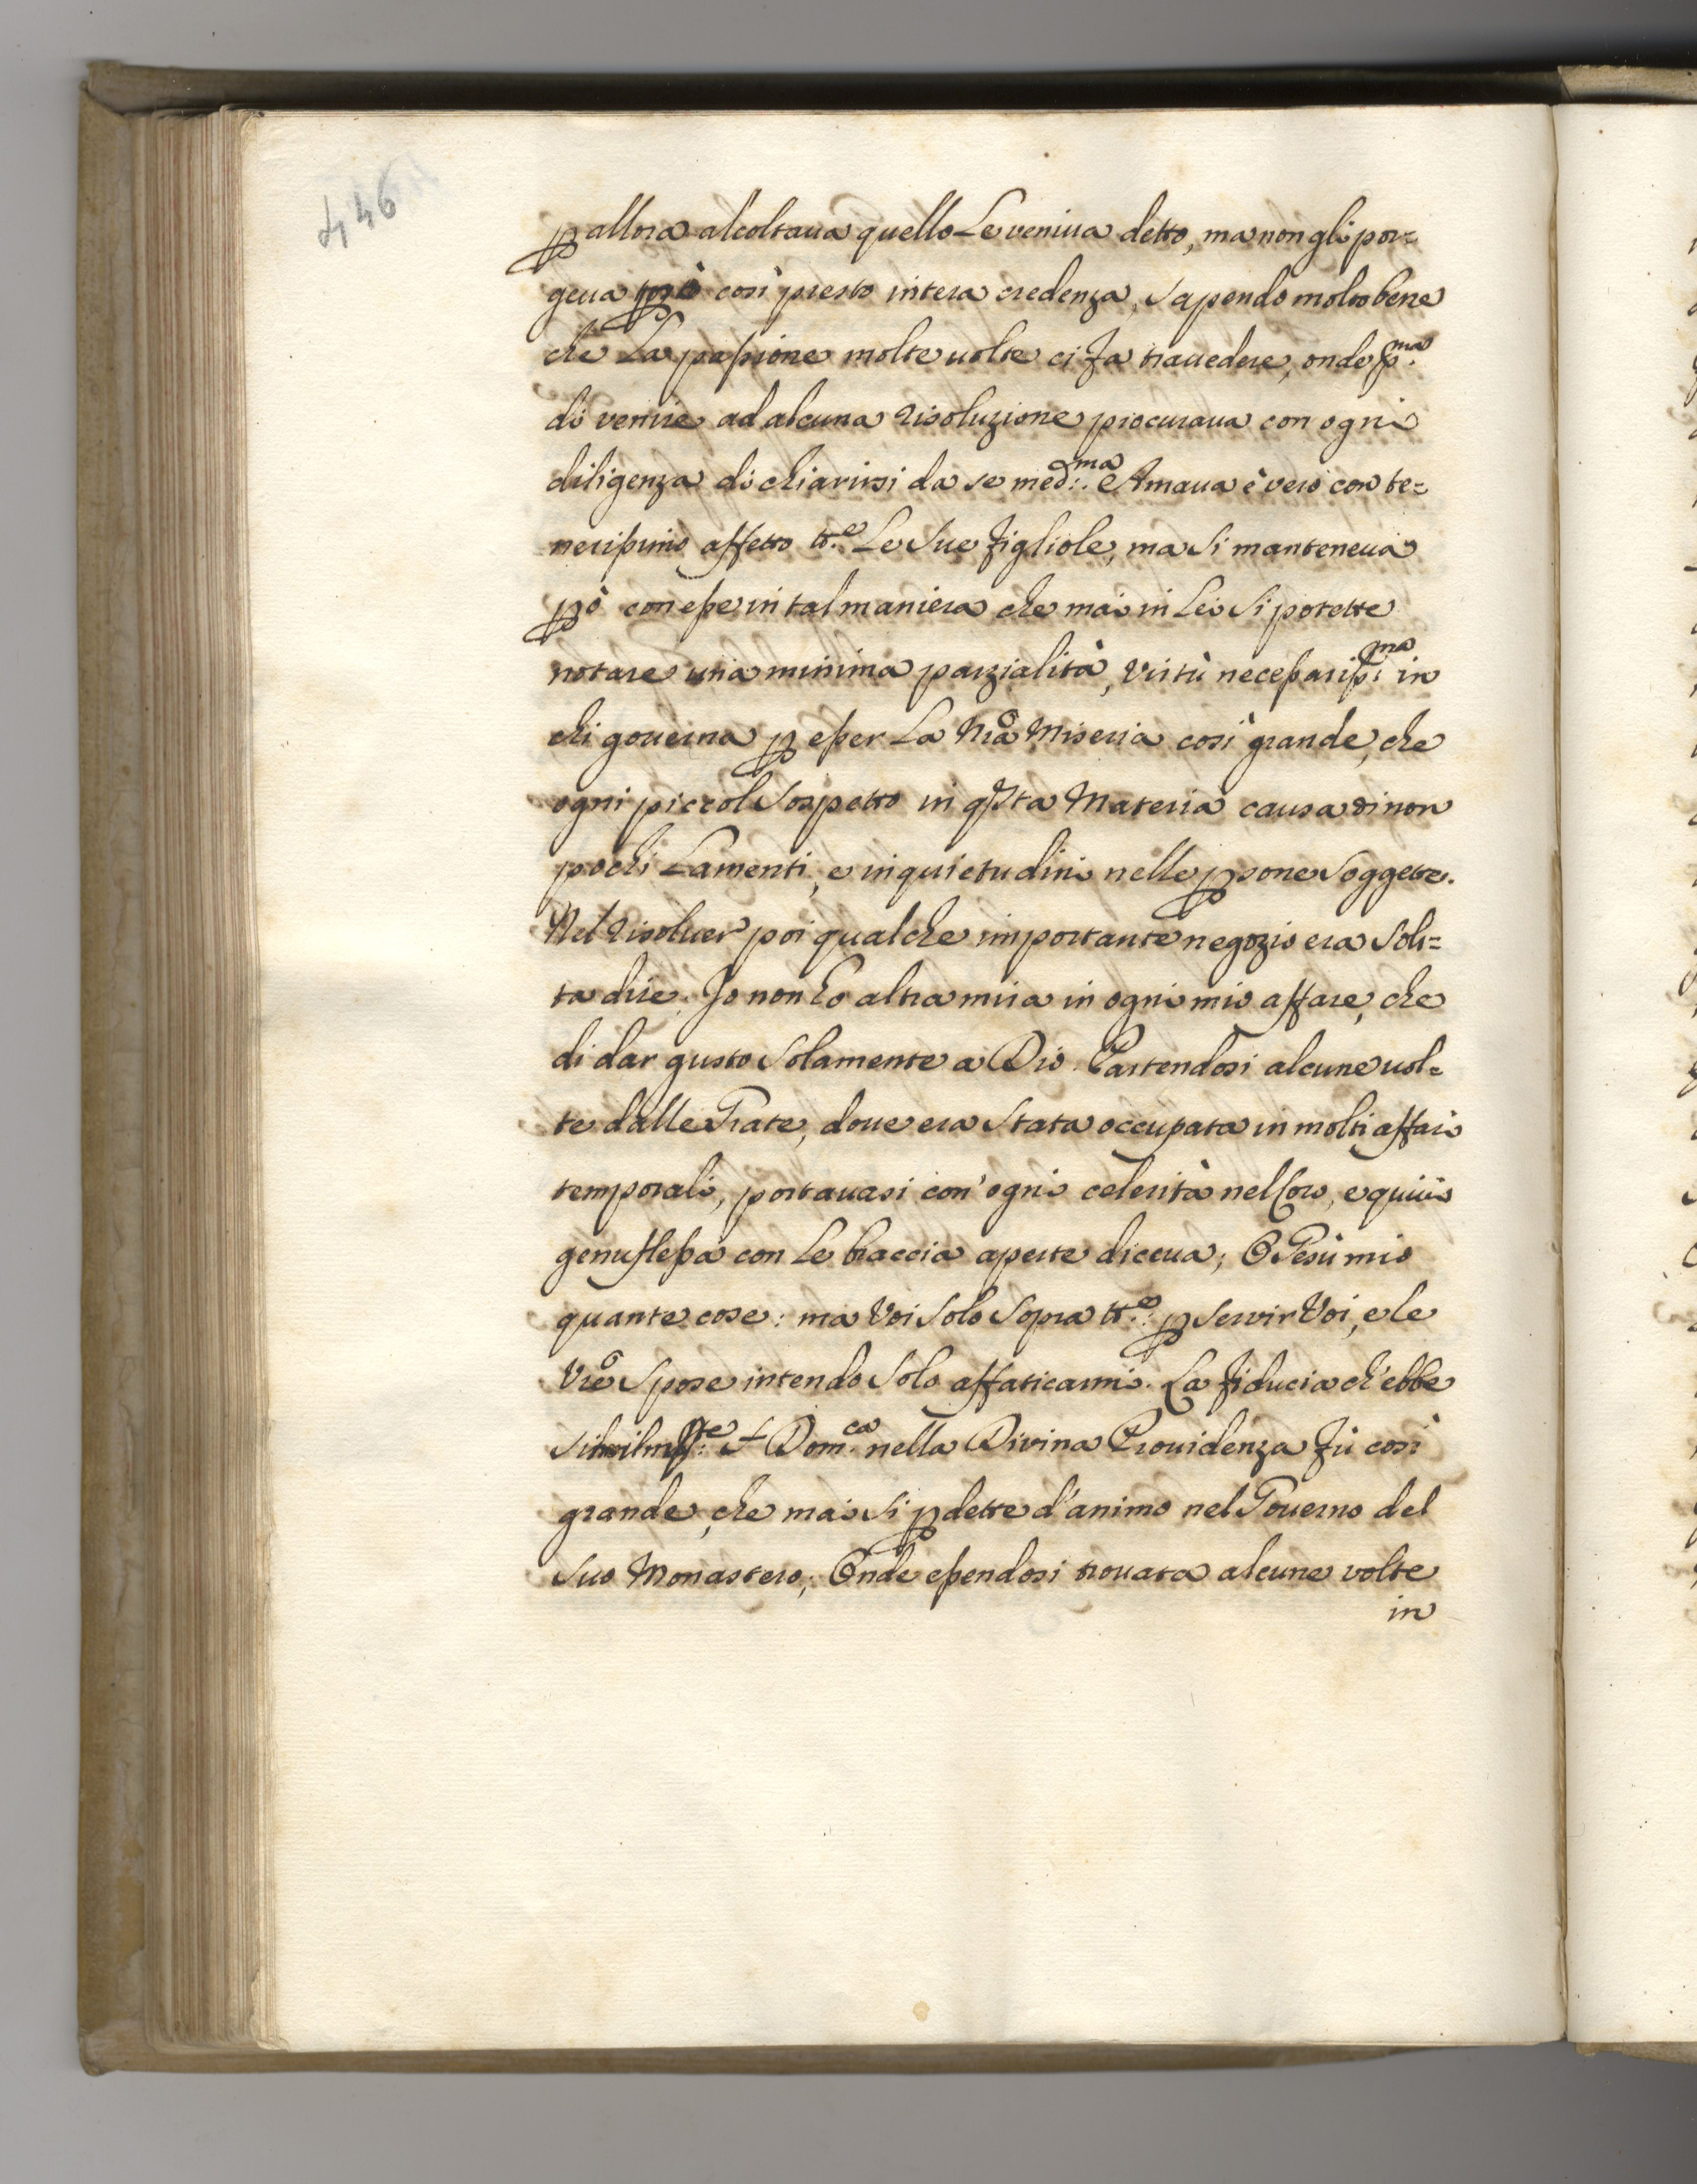 446
p allora alcoltaua quello Le veniua detto, ma non gli por=
geua però così presto intera credenza, Sapendo molto bene
che La passione molte uolte ci fa trauedere, onde p.ma
di venire ad alcuna risoluzione procuraua con ogni
diligenza di chiarirsi da se med.:ma Amaua è vero con te=
nerissimo affetto tt.e Le Sue figliole, ma Si manteneua
pò con esse in tal maniera che mai in Lei Si potette
notare una minima parzialità, Virtù necessarissi.ma in
chi gouerna p esser La Nrã Miseria così grande, che
ogni piccol Sospetto in qsta Materia causa di non
pochi Lamenti, e inquietudini nelle psone Soggette.
Nel risoluer poi qualche importante negozio era Soli=
ta dire. Io non ho altra mira in ogni mio affare, che
di dar gusto Solamente a Dio. Partendosi alcune uol=
te dalle Grate, doue era Stata occupata in molti affari
temporali, portauasi con' ogni celerità nel Coro, e quiui
genuflessa con Le braccia aperte diceua; O Gesù mio
quante cose: ma Voi Solo Sopra tt.e: p Servir Voi, e le
Vrẽ Spose intendo Solo affaticarmi. La fiducia ch'ebbe
S.r Dom.ca nella Divina Prouidenza fù così
grande, che mai Si pdette d'animo nel Gouerno del
Suo Monastero; Onde essendosi trouata alcune volte
in